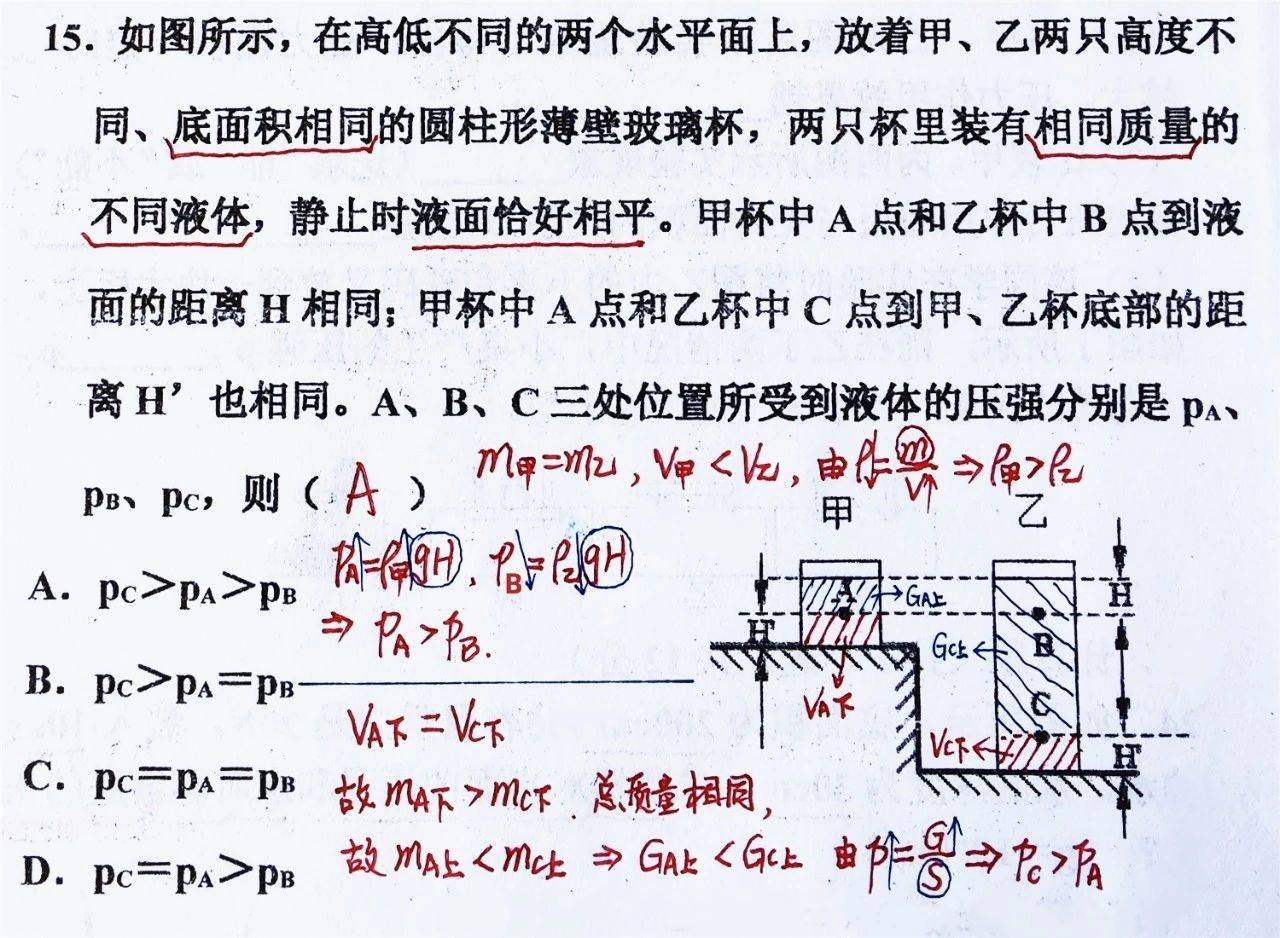 15. 如图所示，在高低不同的两个水平面上，放着甲、乙两只高度不
同、底面积相同的圆柱形薄壁玻璃杯，两只杯里装有相同质量的
不同液体，静止时液面恰好相平。甲杯中 A 点和乙杯中 B 点到液
面的距离 H 相同；甲杯中 A 点和乙杯中 C 点到甲、乙杯底部的距
离 H’ 也相同。A、B、C 三处位置所受到液体的压强分别是 pA、
pB、pC，则（ A ）
m甲=m乙，V甲<V乙，由ρ↓=m/V↑ ⇒ρ甲>ρ乙
甲 乙
A. pC>pA>pB
PA↑=ρ甲↑gH，PB↓=ρ乙↓gH
⇒ PA>PB.
B. pC>pA=pB
VA下=VC下
C. pC=pA=pB
故 mA下>mC下. 总质量相同，
D. pC=pA>pB
故 mA上<mC上 ⇒ GA上<GC上 由p↑=G↑/S⇒PC>PA
A →GA上 H
H' GC上← B
VA下 C
VC下← H'